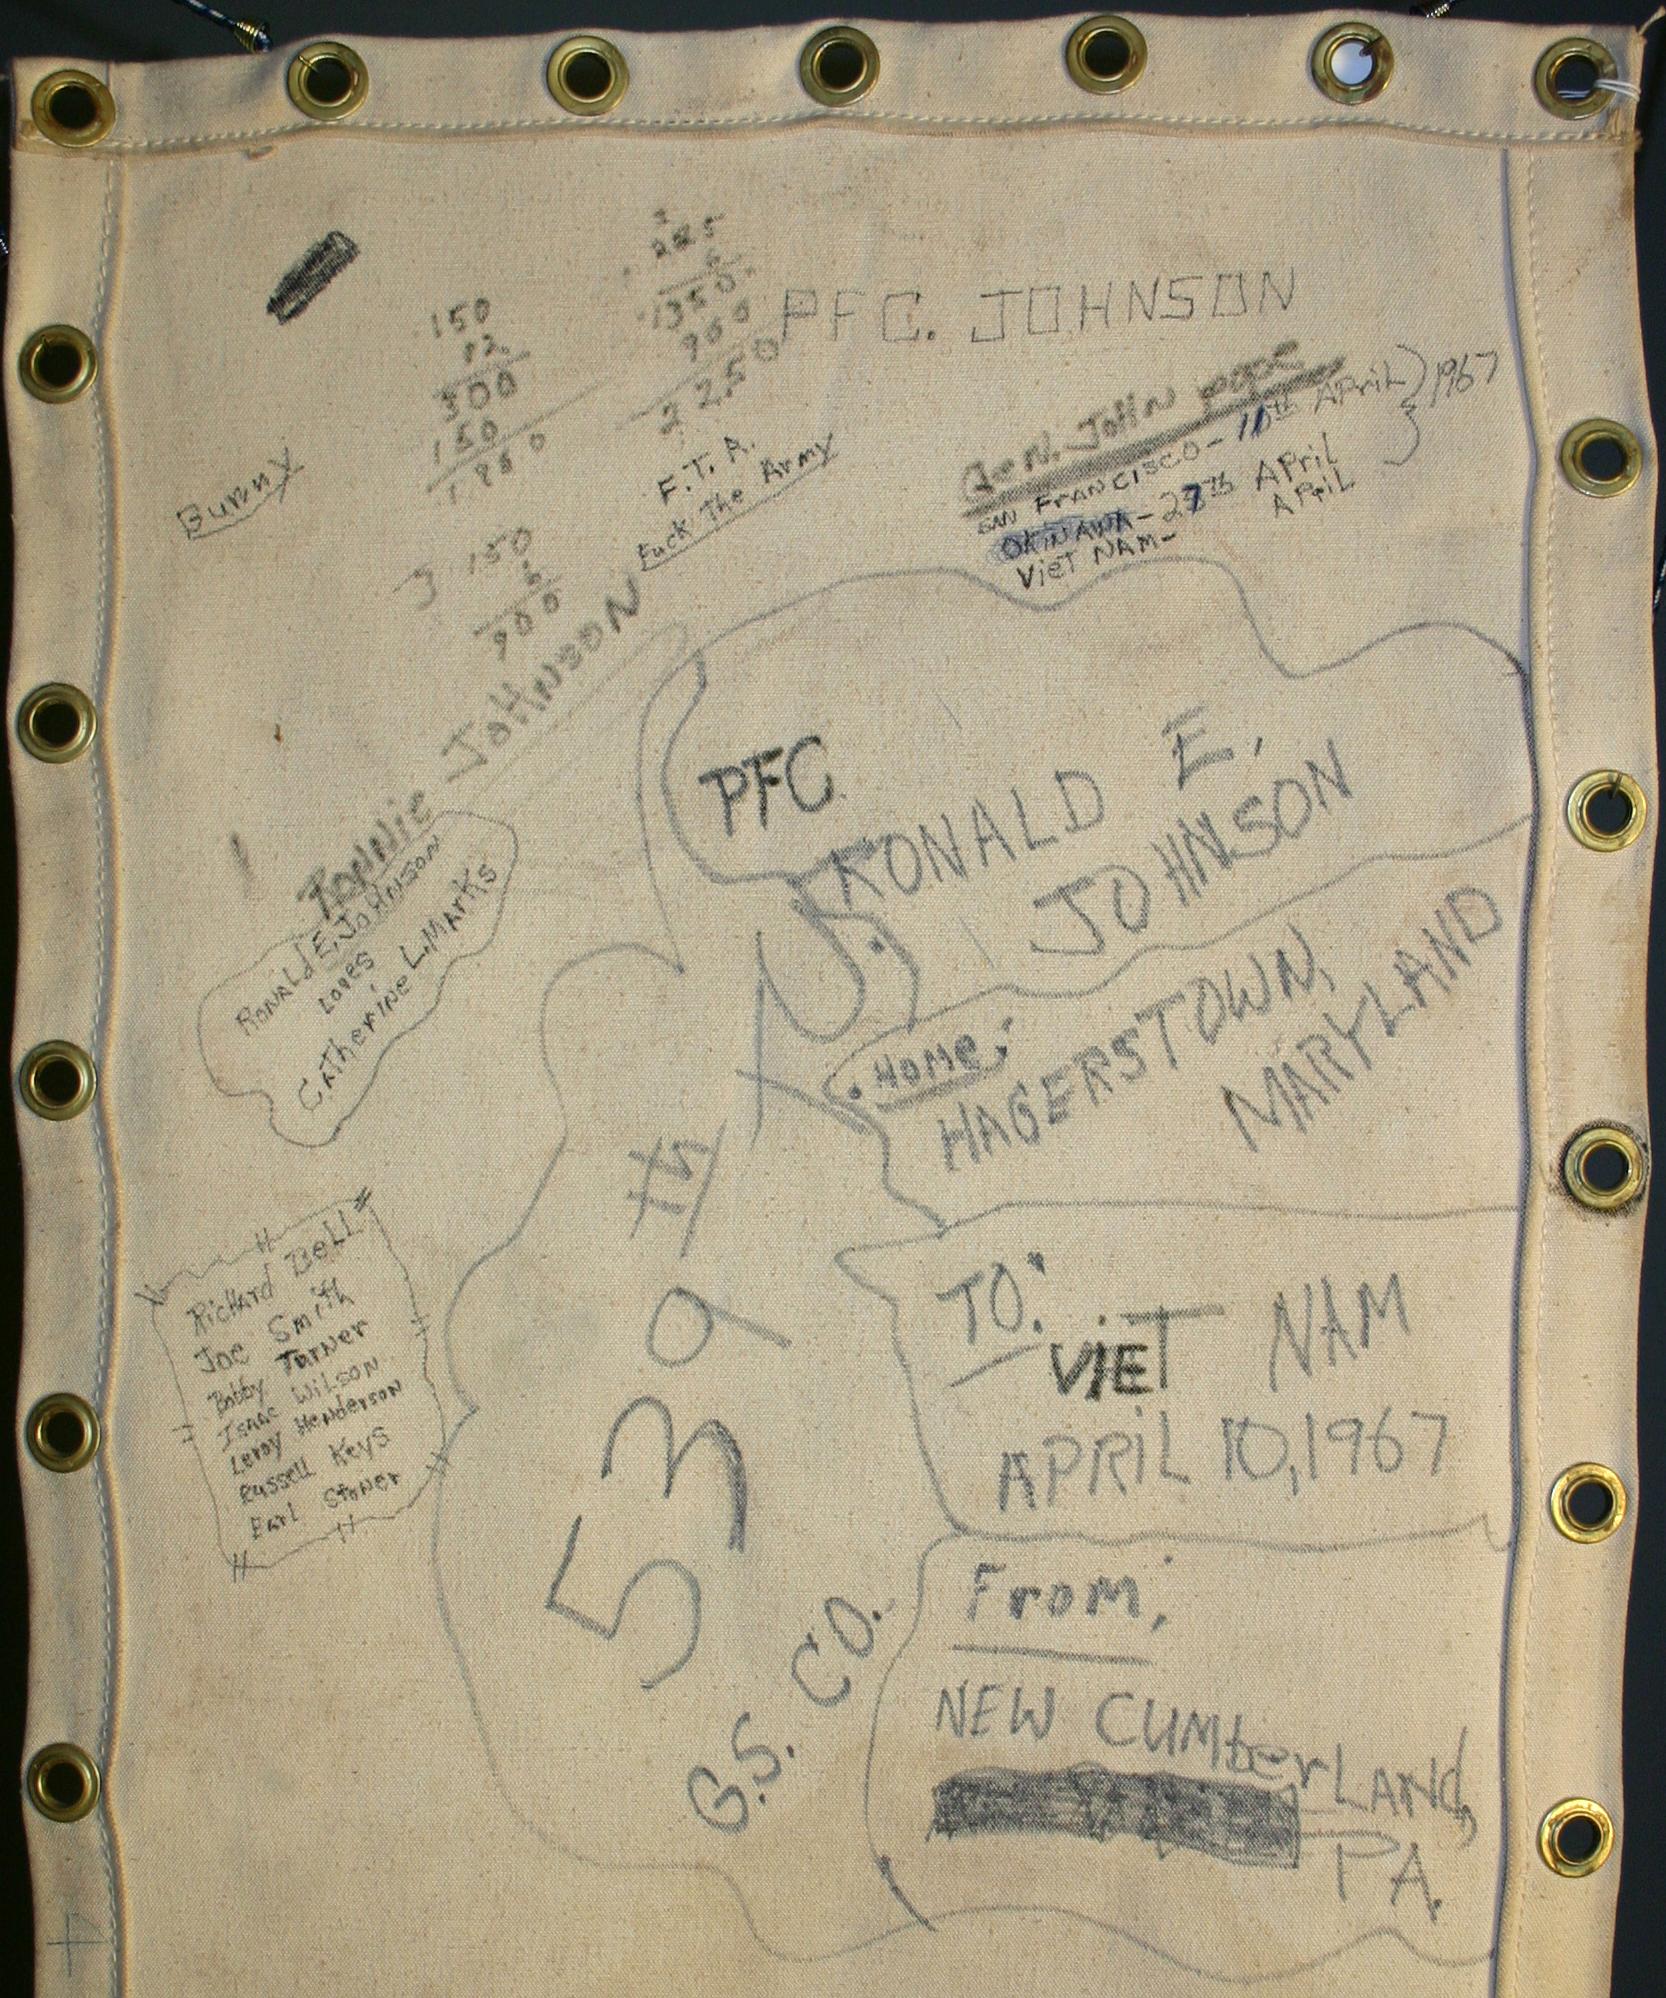 PFC. JOHNSON
GEN. JOHN POPE
SAN FRANCISCO- 10th APRIL } 1967
OKINAWA- 27th APRIL
VIET NAM- APRIL
150
12
300
150
1800
225
6
1350
900
2250
150
6
900
Bunny
F.T.A.
Fuck The Army
RONNIE JOHNSON
RONALD E. JOHNSON
LOVES
CATHERINE L. MARKS
Richard Bell
Joe Smith
Bobby Turner
Isaac Wilson
Leroy Henderson
Russell Keys
Earl Stoner
PFC
RONALD E.
JOHNSON
HOME:
HAGERSTOWN,
MARYLAND
539th
G.S. CO.
TO:
VIET NAM
APRIL 10, 1967
From:
NEW CUMberLAND,
PA.